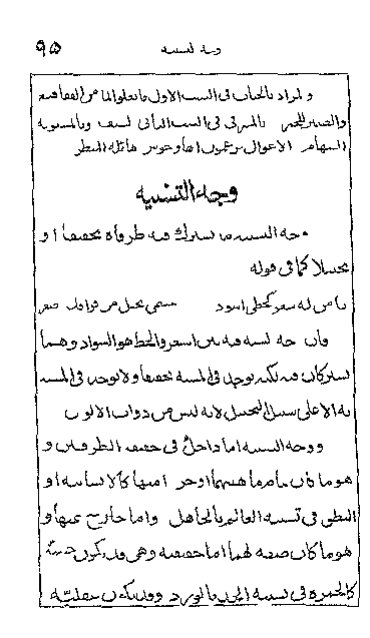 وجه التشبيه ٩٥
والمراد بالحباب فى البيت الاول ما تعلو الماء من الفقاقيع
والضمير للخمر بالمشرفى فى البيت الثانى لسيف وبالمسنونة
السهام الاغوال يزعمون انها وحوش هائلة المنظر
وجه التشبيه
وجه الشبه ما يشترك فيه طرفاه تحقيقا او
تخييلا كما فى قوله
يا من له شعر كحظى اسود جسمى نحيل من فراقك اصفر
فان وجه الشبه فيه بين الشعر والحظ هو السواد وهما
يشتركان فيه لكنه يوجد فى المشبه تحقيقا ولا يوجد فى المشبه
به الا على سبيل التخييل لانه ليس من ذوات الالوان
ووجه الشبه اما داخل فى حقيقة الطرفين و
هو ما كان تمام ماهيتهما او جزء امنها كالانسانية او
النطق فى تشبيه العالم بالجاهل واما خارج عنها و
هو ما كان صفة لهما اما حقيقة وهى قد تكون حسيّة
كالحمرة فى تشبيه الخد بالورد وقد تكون عقليّة